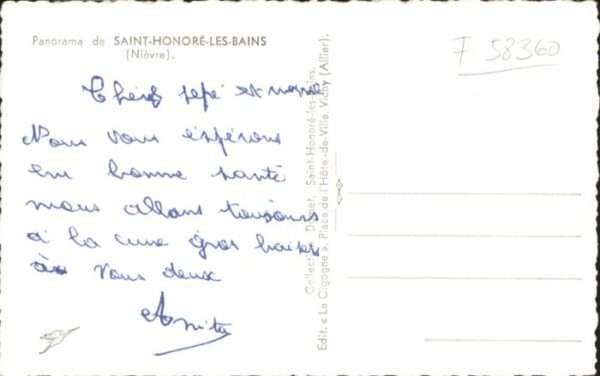 Panorama de SAINT-HONORÉ-LES-BAINS
(Nièvre).
F 58360
Chers pépé et mémé
Nous vous espérons
en bonne santé
nous allons toujours
à la cure gros baisers
à vous deux
Anita
Collection Saint-Honoré-les-Bains.
Edit. « La Cigogne », Place de l'Hôte-de-Ville, Vichy (Allier).